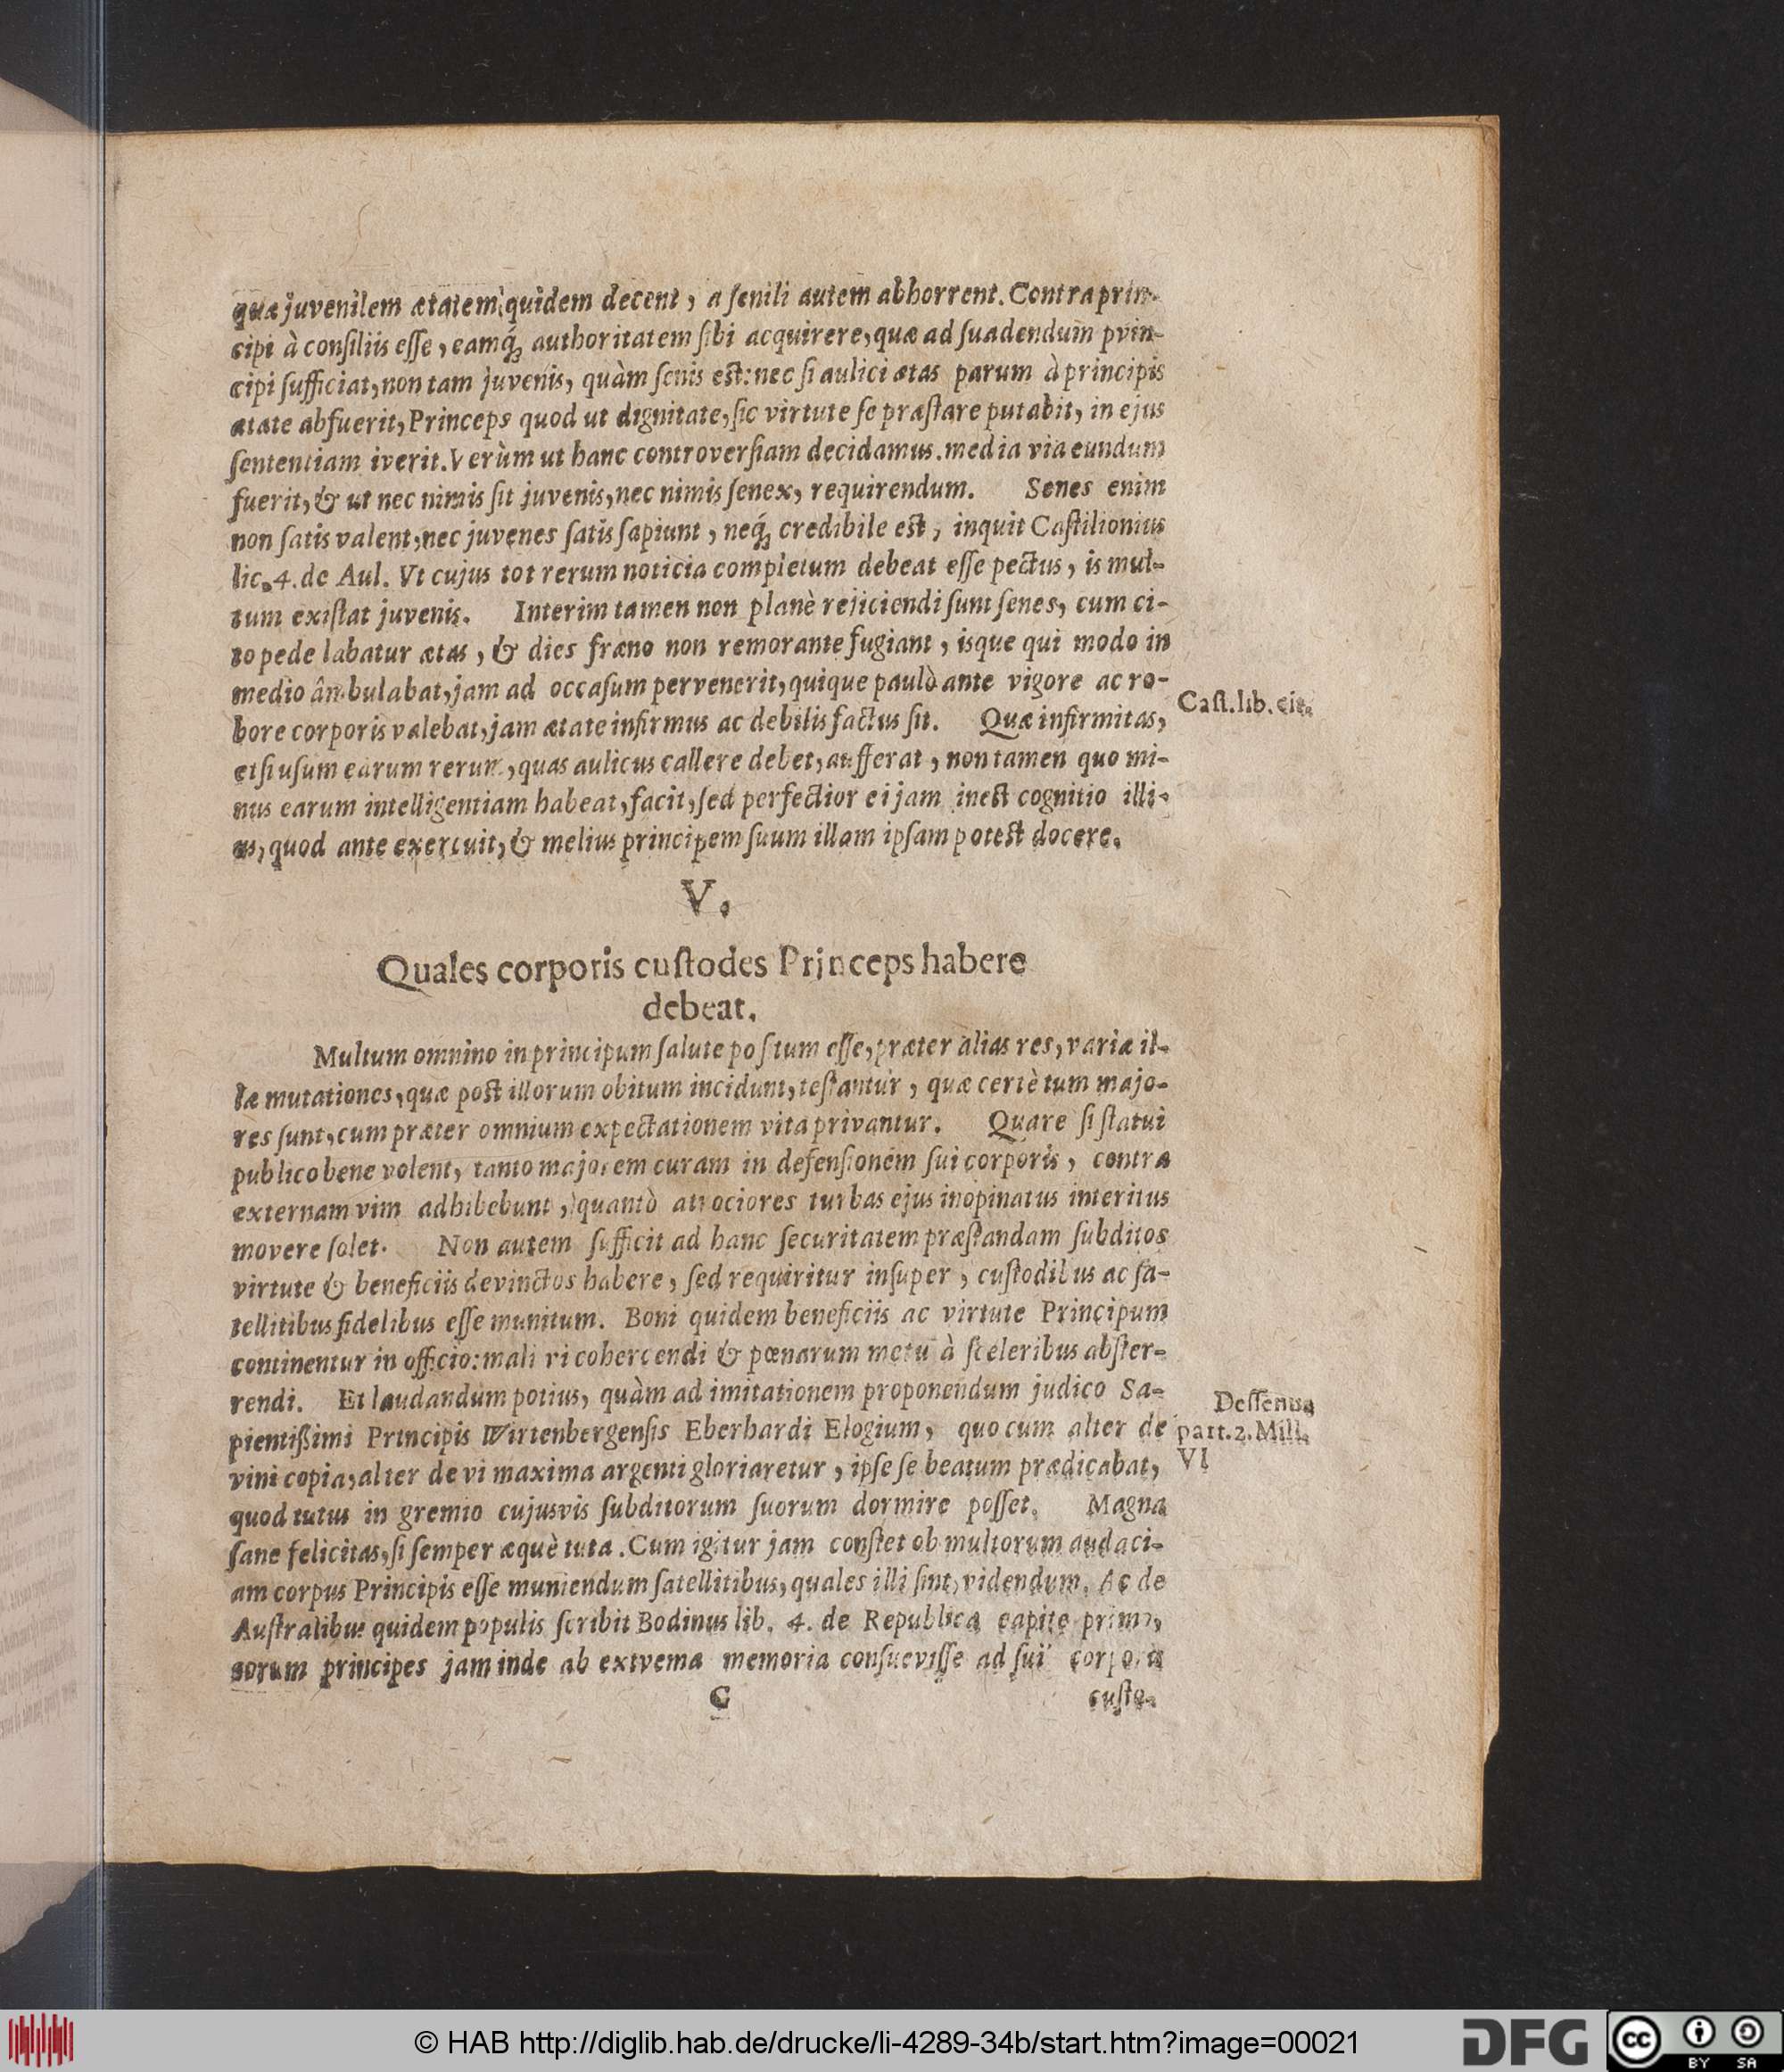 quæ juvenilem ætatem quidem decent, a ſenili autem abhorrent. Contra prin-
cipi à conſiliis eſſe, eamq́; authoritatem ſibi acquirere, quæ ad ſuadendum prin-
cipi ſufficiat, non tam juvenis, quàm ſenis est: nec ſi aulici ætas parum à principis
ætate abfuerit, Princeps quod ut dignitate, ſic virtute ſe præſtare putabit, in ejus
ſententiam iverit. Verùm ut hanc controverſiam decidamus. media via eundum
fuerit, & ut nec nimis ſit juvenis, nec nimis ſenex, requirendum. Senes enim
non ſatis valent, nec juvenes ſatis ſapiunt, neq́; credibile est, inquit Caſtilionius
lic. 4. de Aul. Vt cujus tot rerum noticia completum debeat eſſe pectus, is mul-
tum exiſtat juvenis. Interim tamen non planè rejiciendi ſunt ſenes, cum ci-
to pede labatur ætas, & dies fræno non remorante fugiant, isque qui modo in
medio âmbulabat, jam ad occaſum pervenerit, quique paulò ante vigore ac ro-
bore corporis valebat, jam ætate infirmus ac debilis factus ſit. Quæ infirmitas,
Caſt. lib. cit.
etſi uſum earum rerum, quas aulicus callere debet, aufferat, non tamen quo mi-
nus earum intelligentiam habeat, facit, ſed perfectior ei jam inest cognitio illi-
us, quod ante exercuit, & melius principem ſuum illam ipſam potest docere.
V.
Quales corporis cuſtodes Princeps habere
debeat.
Multum omnino in principum ſalute poſitum eſſe, præter alias res, variæ il-
læ mutationes, quæ post illorum obitum incidunt, teſtantur, quæ certè tum majo-
res ſunt, cum præter omnium expectationem vita privantur. Quare ſi ſtatui
publico bene volent, tanto majorem curam in defenſionem ſui corporis, contra
externam vim adhibebunt, quantò atrociores turbas ejus inopinatus interitus
movere ſolet. Non autem ſufficit ad hanc ſecuritatem præſtandam ſubditos
virtute & beneficiis devinctos habere, ſed requiritur inſuper, cuſtodibus ac ſa-
tellitibus fidelibus eſſe munitum. Boni quidem beneficiis ac virtute Principum
continentur in officio: mali vi cohercendi & pœnarum metu à ſceleribus abſter-
rendi. Et laudandum potius, quàm ad imitationem proponendum judico Sa-
Deſſenius
pientißimi Principis Wirtenbergenſis Eberhardi Elogium, quo cum alter de
part. 2. Mill.
vini copia, alter de vi maxima argenti gloriaretur, ipſe ſe beatum prædicabat,
VI
quod tutus in gremio cujusvis ſubditorum ſuorum dormire poſſet. Magna
ſane felicitas, ſi ſemper æquè tuta. Cum igitur jam conſtet ob multorum audaci-
am corpus Principis eſſe muniendum ſatellitibus, quales illi ſint, videndum. Ac de
Auſtralibus quidem populis ſcribit Bodinus lib. 4. de Republica capite primo,
eorum principes jam inde ab extrema memoria conſueviſſe ad ſui corporis
C
cuſto-
© HAB http://diglib.hab.de/drucke/li-4289-34b/start.htm?image=00021
DFG
cc
BY SA